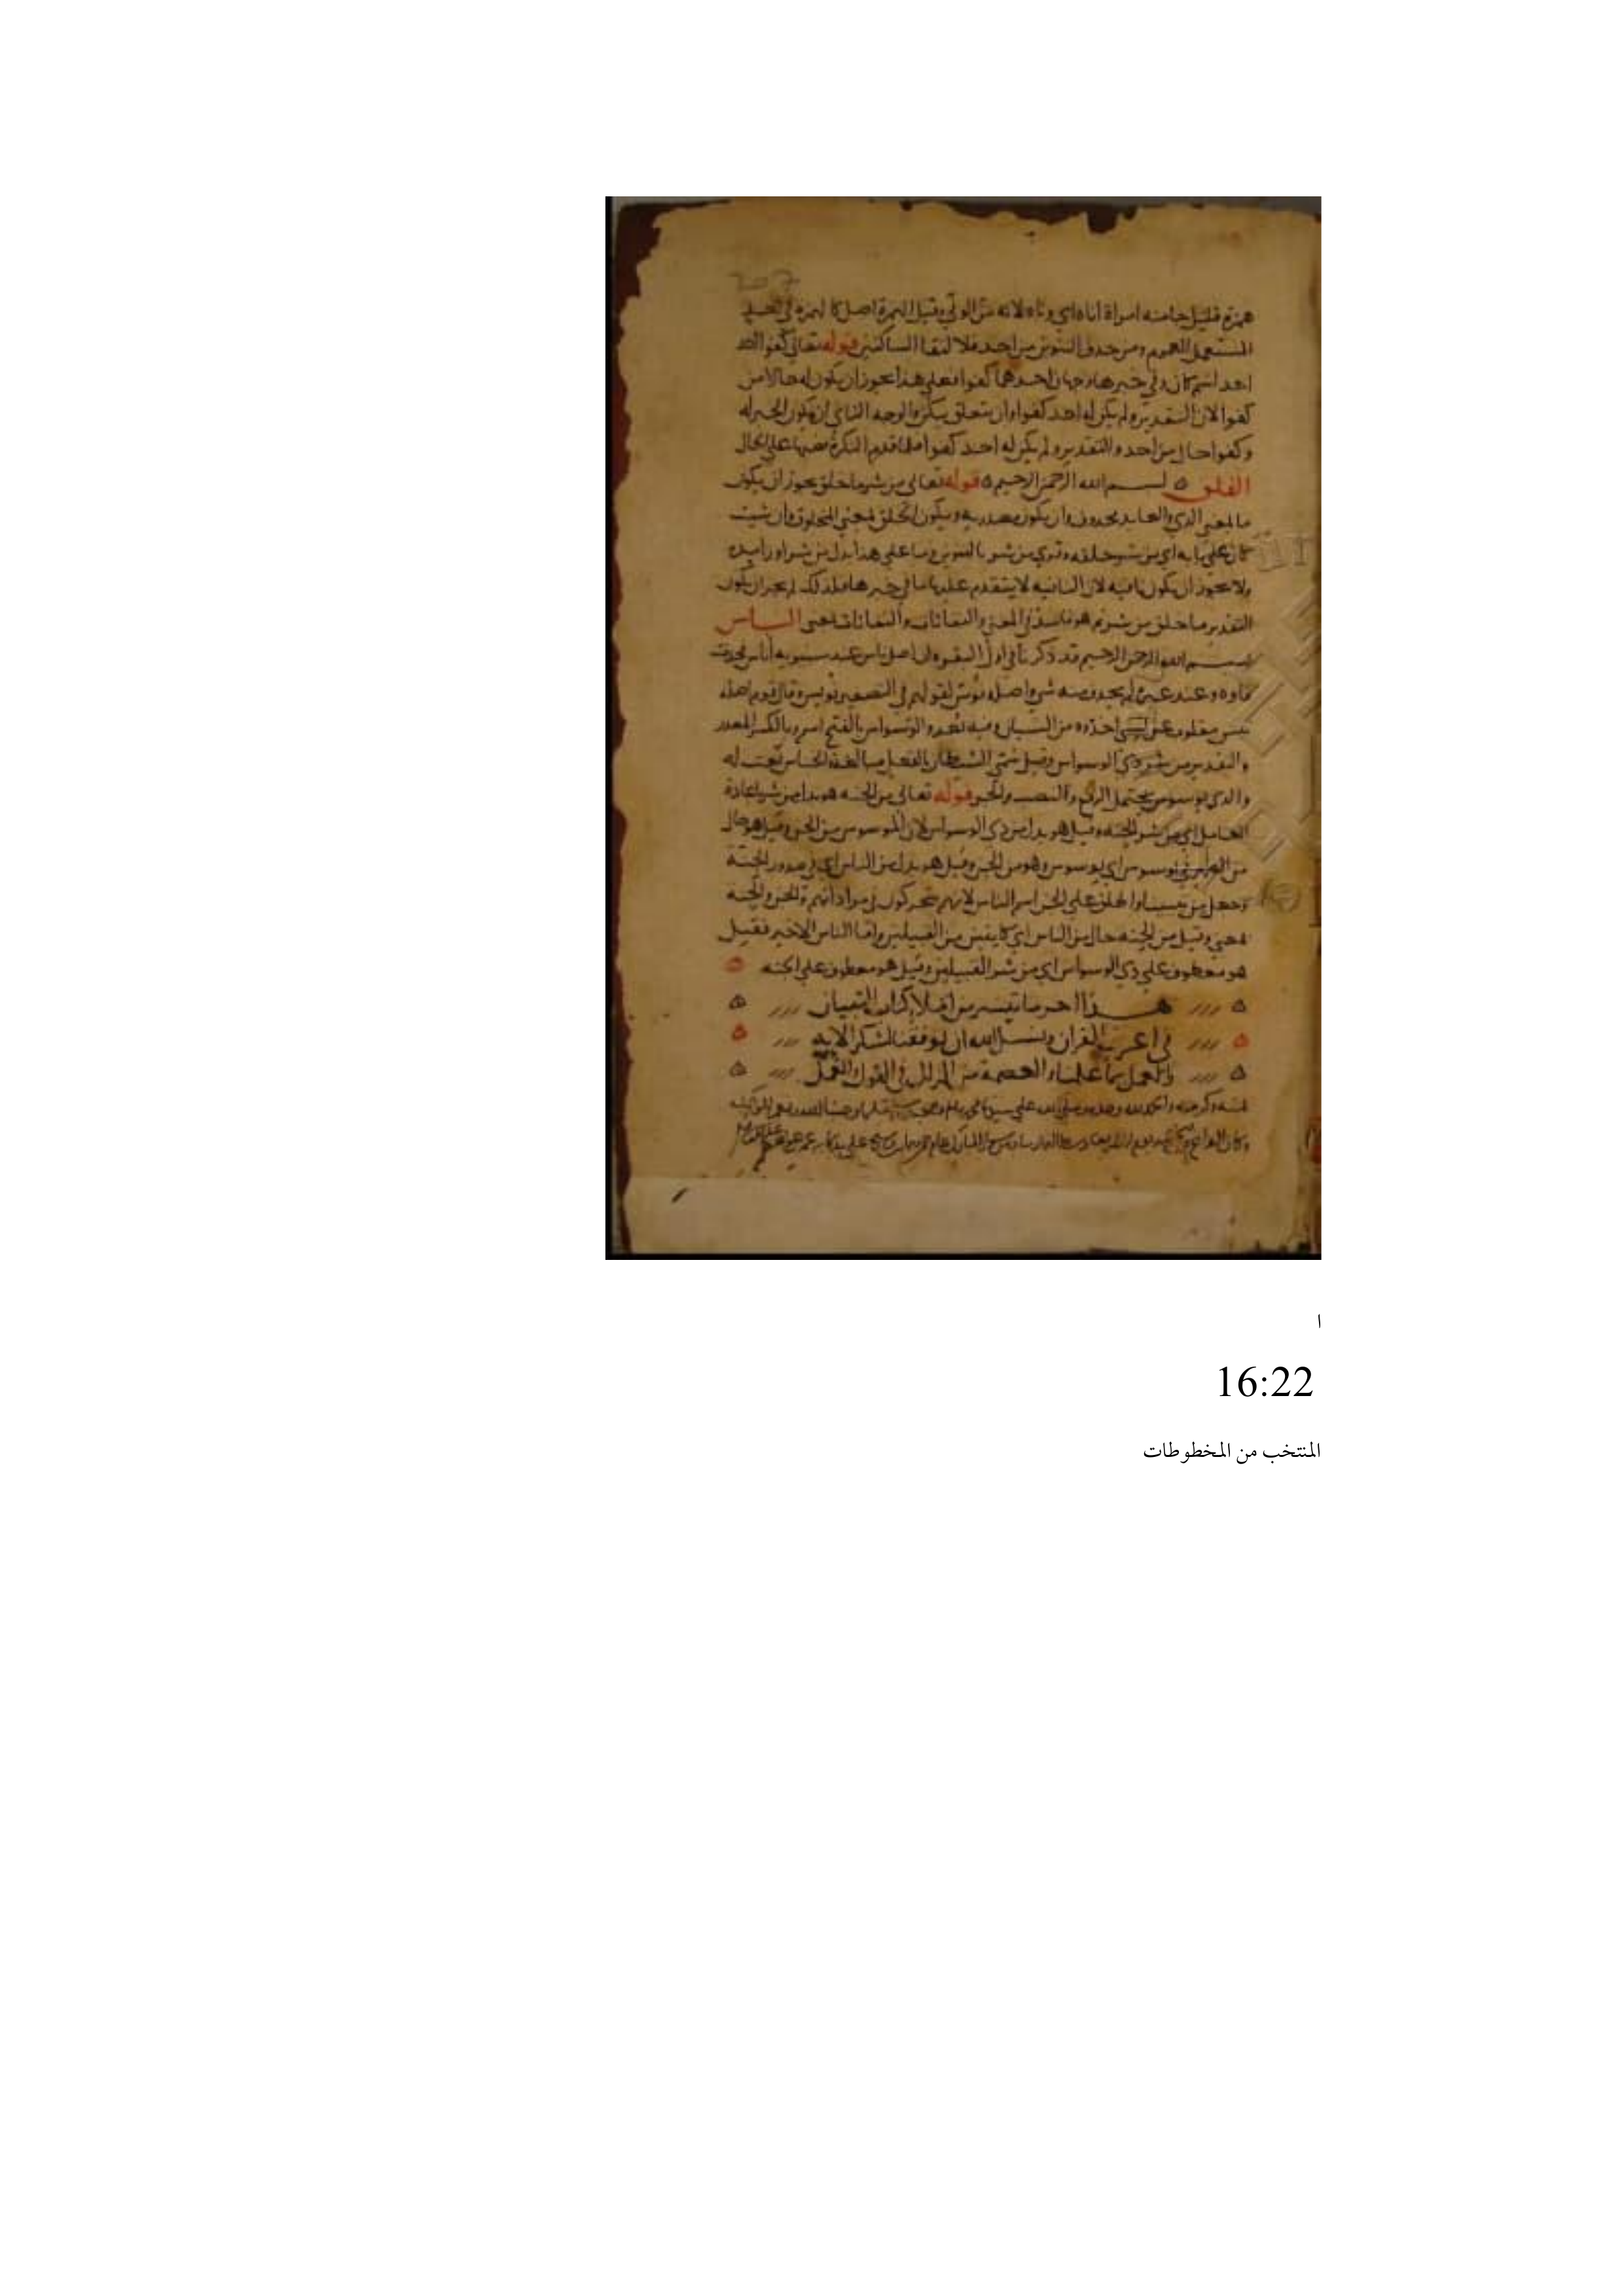 همزة قليل جا منه امراة اناه اي وناه لانه من الوني وقيل الهمزة اصل كالهمزة في احد
المستعمل للعموم ومن حذف التنوين من احد فلالتقا الساكنين قوله تعالي كفوا احد
احد اسم كان وفي خبرها وجهان احدهما كفوا فعلي هذا يجوز ان يكون له حالا من
كفوا لان التقدير ولم يكن له احد كفوا وان يتعلق بيكن والوجه الثاني ان يكون الخبر له
وكفوا حال من احد والتقدير ولم يكن له احد كفوا فلما قدم النكرة نصبها علي الحال
الفلق بسم الله الرحمن الرحيم قوله تعالي من شر ما خلق يجوز ان يكون
ما بمعني الذي والعايد محذوف وان يكون مصدريه ويكون الخلق بمعني المخلوق وان شيت
كان علي بابه اي من شر خلقه وقري من شر بالتنوين وما علي هذا بدل من شر او زايده
ولا يجوز ان يكون نافيه لان النافيه لا يتقدم عليها ما في خبرها فلذلك لم يجز ان يكون
التقدير ما خلق من شر ثم هو فاسد في المعني والنفاثات والنفاثات بمعني الناس
بسم الله الرحمن الرحيم قد ذكرنا في اول البقره ان اصل ناس عند سيبويه أناس فحذفت
فاوه وعند غيره لم يحذف منه شي واصله نوس لقولهم في التصغير نويس وقال قوم اصله
نيس مقلوب عن نسي اخذوه من النسيان وفيه بُعد والوسواس بالفتح اسم وبالكسر المصدر
والتقدير من شر ذي الوسواس وقيل سمّي الشيطان بالفعل مبالغة الخناس نعت له
والذي يوسوس يحتمل الرفع والنصب والجر قوله تعالي من الجنه هو بدل من شر باعادة
العامل اي من شر الجنه وقيل هو بدل من ذي الوسواس لان الموسوس من الجن وقيل هو حال
من الضمير في يوسوس اي يوسوس وهو من الجن وقيل هو بدل من الناس اي في صدور الجنة
وجعل من تبيينا واطلق علي الجن اسم الناس لانهم يتحركون في مراداتهم والجن والجنة
بمعني وقيل من الجنه حال من الناس اي كاينين من القبيلين واما الناس الاخير فقيل
هو معطوف علي ذي الوسواس اي من شر القبيلين وقيل هو معطوف علي الجنه
هذا اخر ما تيسر من املا كتاب التبيان
في اعراب القران ونسل الله ان يوفقنا لشكر الايه
والعمل بما علمنا والعصمة من الزلل في القول والعمل
بمنه وكرمه والحمد لله وحده وصلي الله علي سيدنا محمد
ا
16:22
المنتخب من المخطوطات